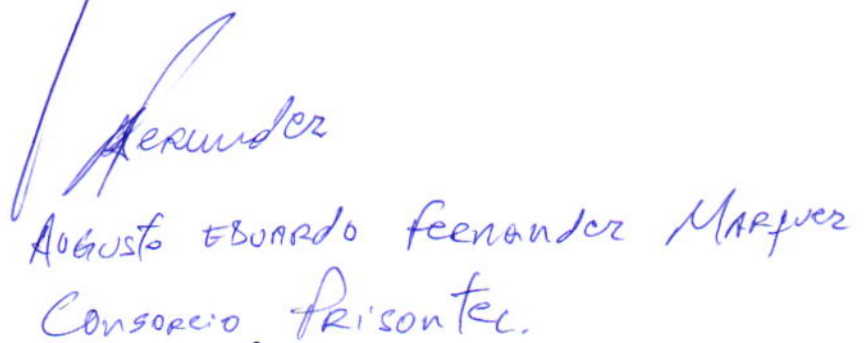 Fernandez
Augusto Eduardo Fernandez Marquez
Consorcio Prisontec.